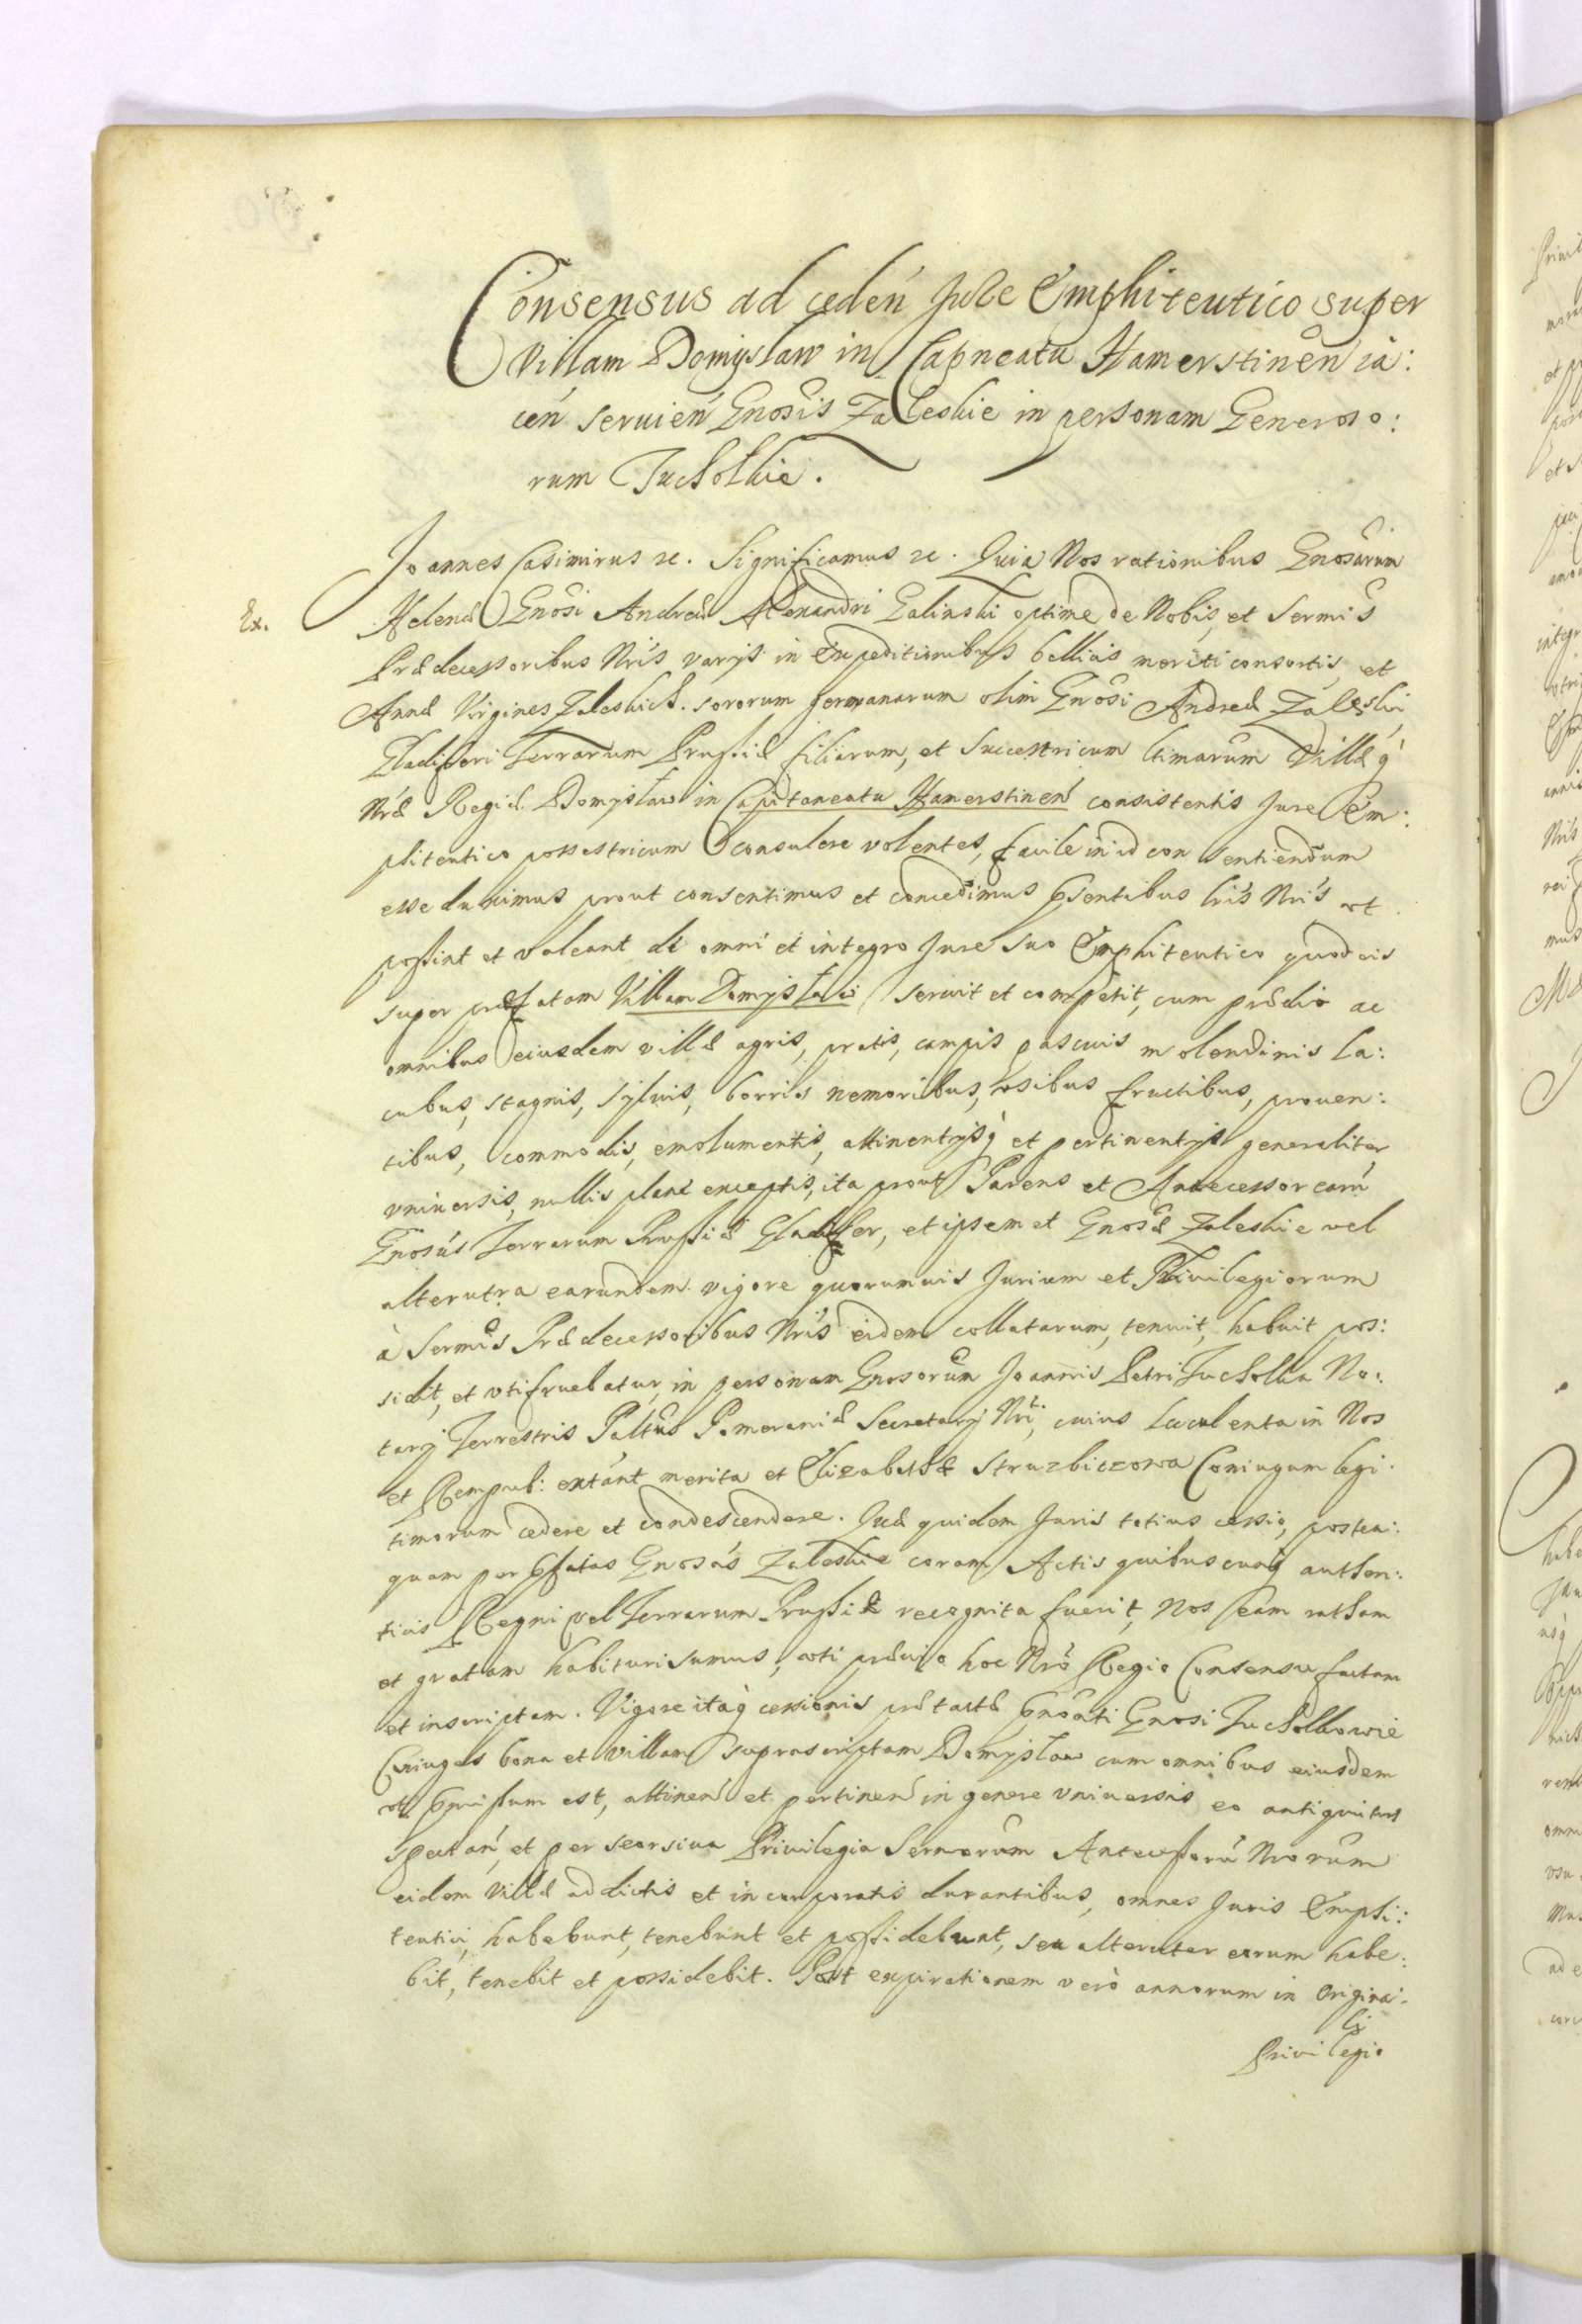 Consensus ad ceden Jure Emphiteutico super
Villam Domysław in Capneatu Hamerstinen ia:
cen seruien Gnosis Zaleskie in personam Generoso:
rum Tucholkie.
Joannes Casimirus etc. Significamus etc. Quia Nos rationibus Gnosarum
Ex.
Helenæ Gnosi Andreæ Alexandri Galinski optime de Nobis, et Sermis
Prædecessoribus Nris varijs in Expeditionibus bellicis meriti consortis, et
Annæ Virgines Zaleskich sororum germanarum olim Gnosi Andreæ Zaleski
Gladiferi Terrarum Prussiæ filiarum, et Successricum ltimarum Villæq
Nræ Regiæ Domysław in Capitaneatu Hamerstinen consistentis Jure Em:
phiteutico possestricum consulere volentes, facile in id con sentiendum
esse duximus prout consentimus et concedimus psentibus lris Nris ut
possint et valeant de omni et integro Jure suo Emphiteutico quod eis
super præfatam Villam Domysław seruit et competit, cum prædio ac
omnibus eiusdem villæ agris, pratis, campis pascuis molendinis la:
cubus, stagnis, syluis, borris nemoribus, vsibus fructibus, prouen:
tibus, commodis, emolumentis, attinentijsq et pertinentijs generaliter
vniuersis, nullis plane exceptis, ita prout Parens et Antecessor earu
Gnosus Terrarum Prussiæ Gladifer, et ipsemet Gnosæ Zaleskie vel
alterutra earundem vigore quorumuis Jurium et Priuilegiorum
à Sermis Prædecessoribus Nris eidem collatarum, tenuit, habuit pos:
sidit, et vtifruebatur, in personam Gnosorum Joannis Petri Tucholka No:
tarij Terrestris Paltus Pomeraniæ Secretarij Nri, cuius luculenta in Nos
et Rempub: extant merita et Elizabethæ Struzbiczowa Coniugum legi
timorum cedere et condescendere. Quæ quidem Juris totius cessio, postea:
quam per pfatas Gnosas Zaleskie coram Actis quibuscunq authen:
ticis Regni vel Terrarum Prussiæ recognita fuerit, Nos eam ratham
et gratam habituri sumus, vti præuio hoc Nro Regio Consensu factam
et inscriptam. Vigore itaq cessionis prætactæ pnoati Gnosi Tucholkowie
Coniuges bona et Villam suprascriptam Domysław cum omnibus eiusdem
vt pmissum est, attinen et pertinen in genere vniuersis eo antiquitus
spectan, et per seorsiua Priuilegia Sermorum Antecessoru Nrorum
eidem Villæ addictis et incorporatis durantibus, omnes Juris Emphi:
teutici, habebunt, tenebunt et possidebunt, seu alteruter eorum habe:
bit, tenebit et possidebit. Post expirationem verò annorum in Origina:
li
Priuilegio